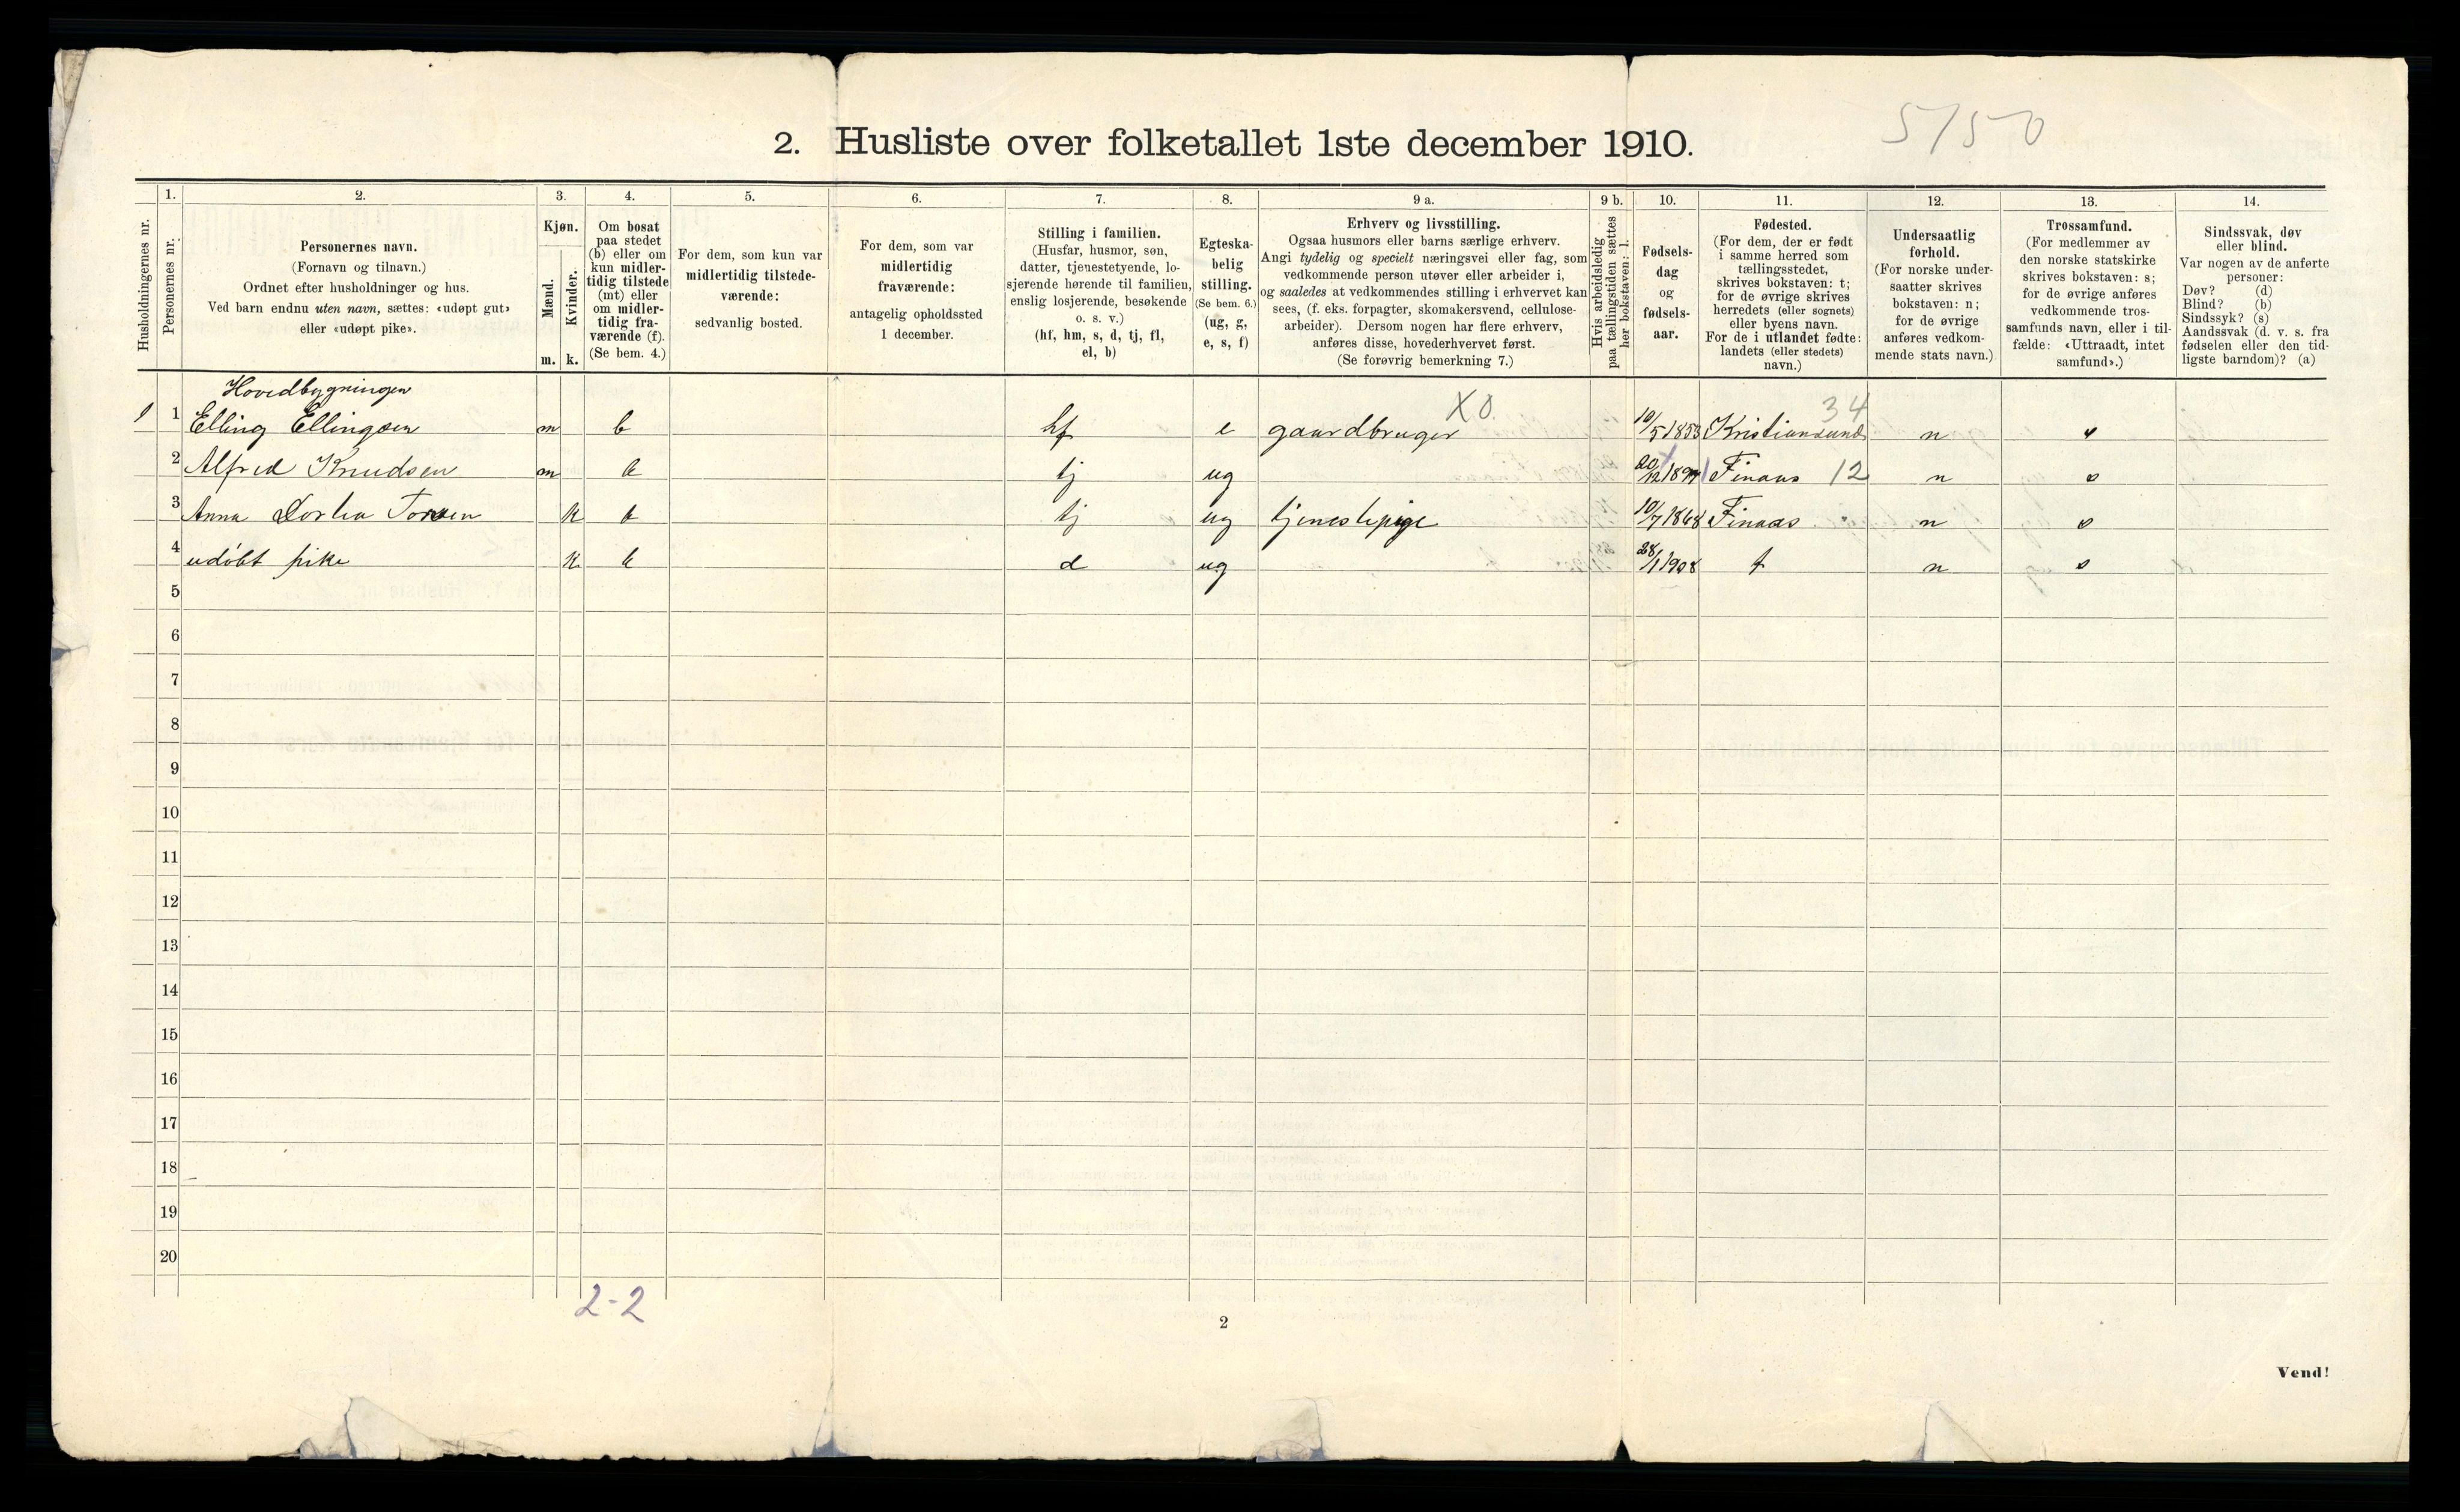 5/50
2. Husliste over folketallet 1ste december 1910.
Husholdningernes nr.
1.
Personernes nr.
2.
Personernes navn.
(Fornavn og tilnavn.)
Ordnet efter husholdninger og hus.
Ved barn endnu uten navn, sættes: «udøpt gut»
eller «udøpt pike».
3.
Kjøn.
Mænd.
m.
Kvinder.
k.
4.
Om bosat
paa stedet
(b) eller om
kun midler-
tidig tilstede
(mt) eller
om midler-
tidig fra-
værende (f).
(Se bem. 4.)
5.
For dem, som kun var
midlertidig tilstede-
værende:
sedvanlig bosted.
6.
For dem, som var
midlertidig
fraværende:
antagelig opholdssted
1 december.
7.
Stilling i familien.
(Husfar, husmor, søn,
datter, tjenestetyende, lo-
sjerende hørende til familien,
enslig losjerende, besøkende
o. s. v.)
(hf, hm, s, d, tj, fl,
el, b)
8.
Egteska-
belig
stilling.
(Se bem. 6.)
(ug, g,
e, s, f)
9 a.
Erhverv og livsstilling.
Ogsaa husmors eller barns særlige erhverv.
Angi tydelig og specielt næringsvei eller fag, som
vedkommende person utøver eller arbeider i,
og saaledes at vedkommendes stilling i erhvervet kan
sees, (f. eks. forpagter, skomakersvend, cellulose-
arbeider). Dersom nogen har flere erhverv,
anføres disse, hovederhvervet først.
(Se forøvrig bemerkning 7.)
9 b.
Hvis arbeidsledig
paa tællingstiden sættes
her bokstaven: l.
10.
Fødsels-
dag
og
fødsels-
aar.
11.
Fødested.
(For dem, der er født
i samme herred som
tællingsstedet,
skrives bokstaven: t;
for de øvrige skrives
herredets (eller sognets)
eller byens navn.
For de i utlandet fødte:
landets (eller stedets)
navn.)
12.
Undersaatlig
forhold.
(For norske under-
saatter skrives
bokstaven: n;
for de øvrige
anføres vedkom-
mende stats navn.)
13.
Trossamfund.
(For medlemmer av
den norske statskirke
skrives bokstaven: s;
for de øvrige anføres
vedkommende tros-
samfunds navn, eller i til-
fælde: «Uttraadt, intet
samfund».)
14.
Sindssvak, døv
eller blind.
Var nogen av de anførte
personer:
Døv? (d)
Blind? (b)
Sindssyk? (s)
Aandssvak (d. v. s. fra
fødselen eller den tid-
ligste barndom)? (a)
Hovedbygningen
X0. 34
1 1 Elling Ellingsen m b hf e gaardbruger 10/5 1853 Kristiansund n s
2 Alfred Knudsen m b tj ug 20/12 Finaas 12 n s
3 Anna k b tj ug tjenestepige 10/7 1868 Finaas n s
4 udöbt pike k b d ug 28/1 1908 t n s
5
6
7
8
9
10
11
12
13
14
15
16
17
18
19
20
2-2
2
Vend!